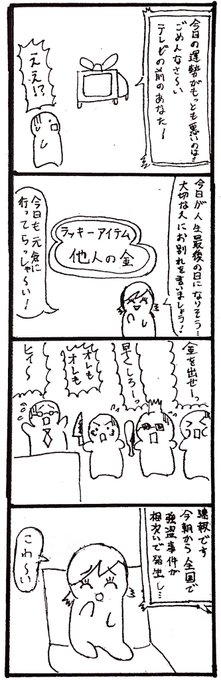 今日の運勢がもっとも悪いのは
ごめんなさ～い
テレビの前のあなたー
ええ!?
今日が人生最後の日になりそうー
大切な人にお別れを言いましょう!
ラッキーアイテム
他人の金
今日も元気に
行ってらっしゃ～い!
金を出せーっ
早くしろーっ
オレも
オレも
ヒィ～
速報です
今朝から全国で
強盗事件が
相次いで発生し…
こわ～い